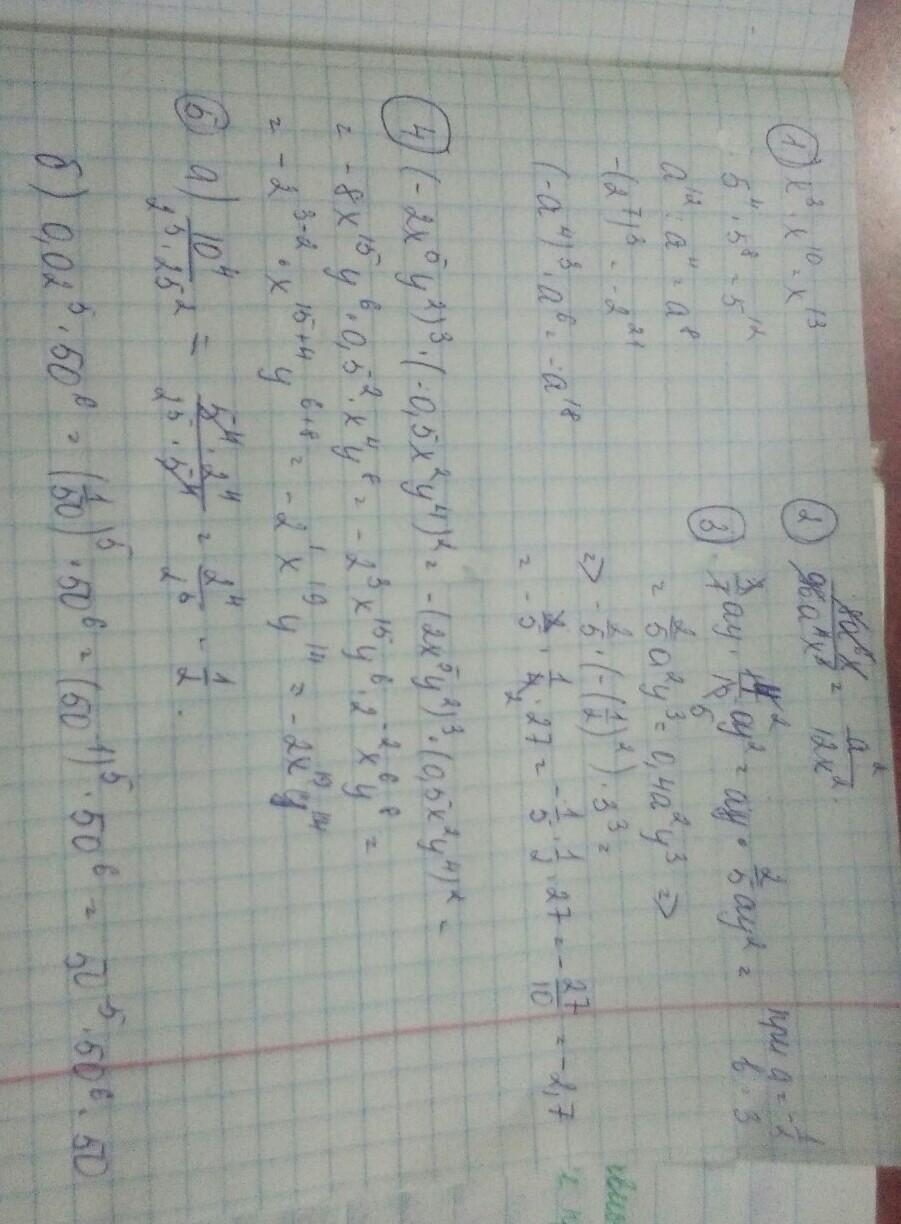 ① x³ · x¹⁰ = x¹³
5⁴ · 5⁸ = 5¹²
a¹² : a⁴ = a⁸
-(2⁷)³ = -2²¹
(-a⁴)³ · a⁶ = -a¹⁸
② = a²/12x².
③ ay · ay² = ay · 2/5 ay² =
при a = -1/2
= 2/5 a²y³ = 0,4a²y³ ⇒
⇒ -2/5 · (-(1/2)²) · 3³ =
= - · 27 = -1/5 · 1/2 · 27 = -27/10 = -2,7
④ (-2x⁵y²)³ · (-0,5x²y⁴)² = -(2x⁵y²)³ · (0,5x²y⁴)² =
= -8x¹⁵y⁶ · 0,5² · x⁴y⁸ = -2³x¹⁵y⁶ · 2⁻²x y⁸ =
= -2³⁻² · x¹⁵⁺⁴ y⁶⁺⁸ = -2¹x¹⁹y¹⁴ = -2x¹⁹y¹⁴
а) 10⁴/2⁵·25² = 5⁴·2⁴/2⁵·5⁴ = 2⁴/2⁵ = 1/2.
б) 0,02⁵ · 50⁶ = (1/50)⁵ · 50⁶ = (50⁻¹)⁵ · 50⁶ = 50⁻⁵ · 50⁶ = 50